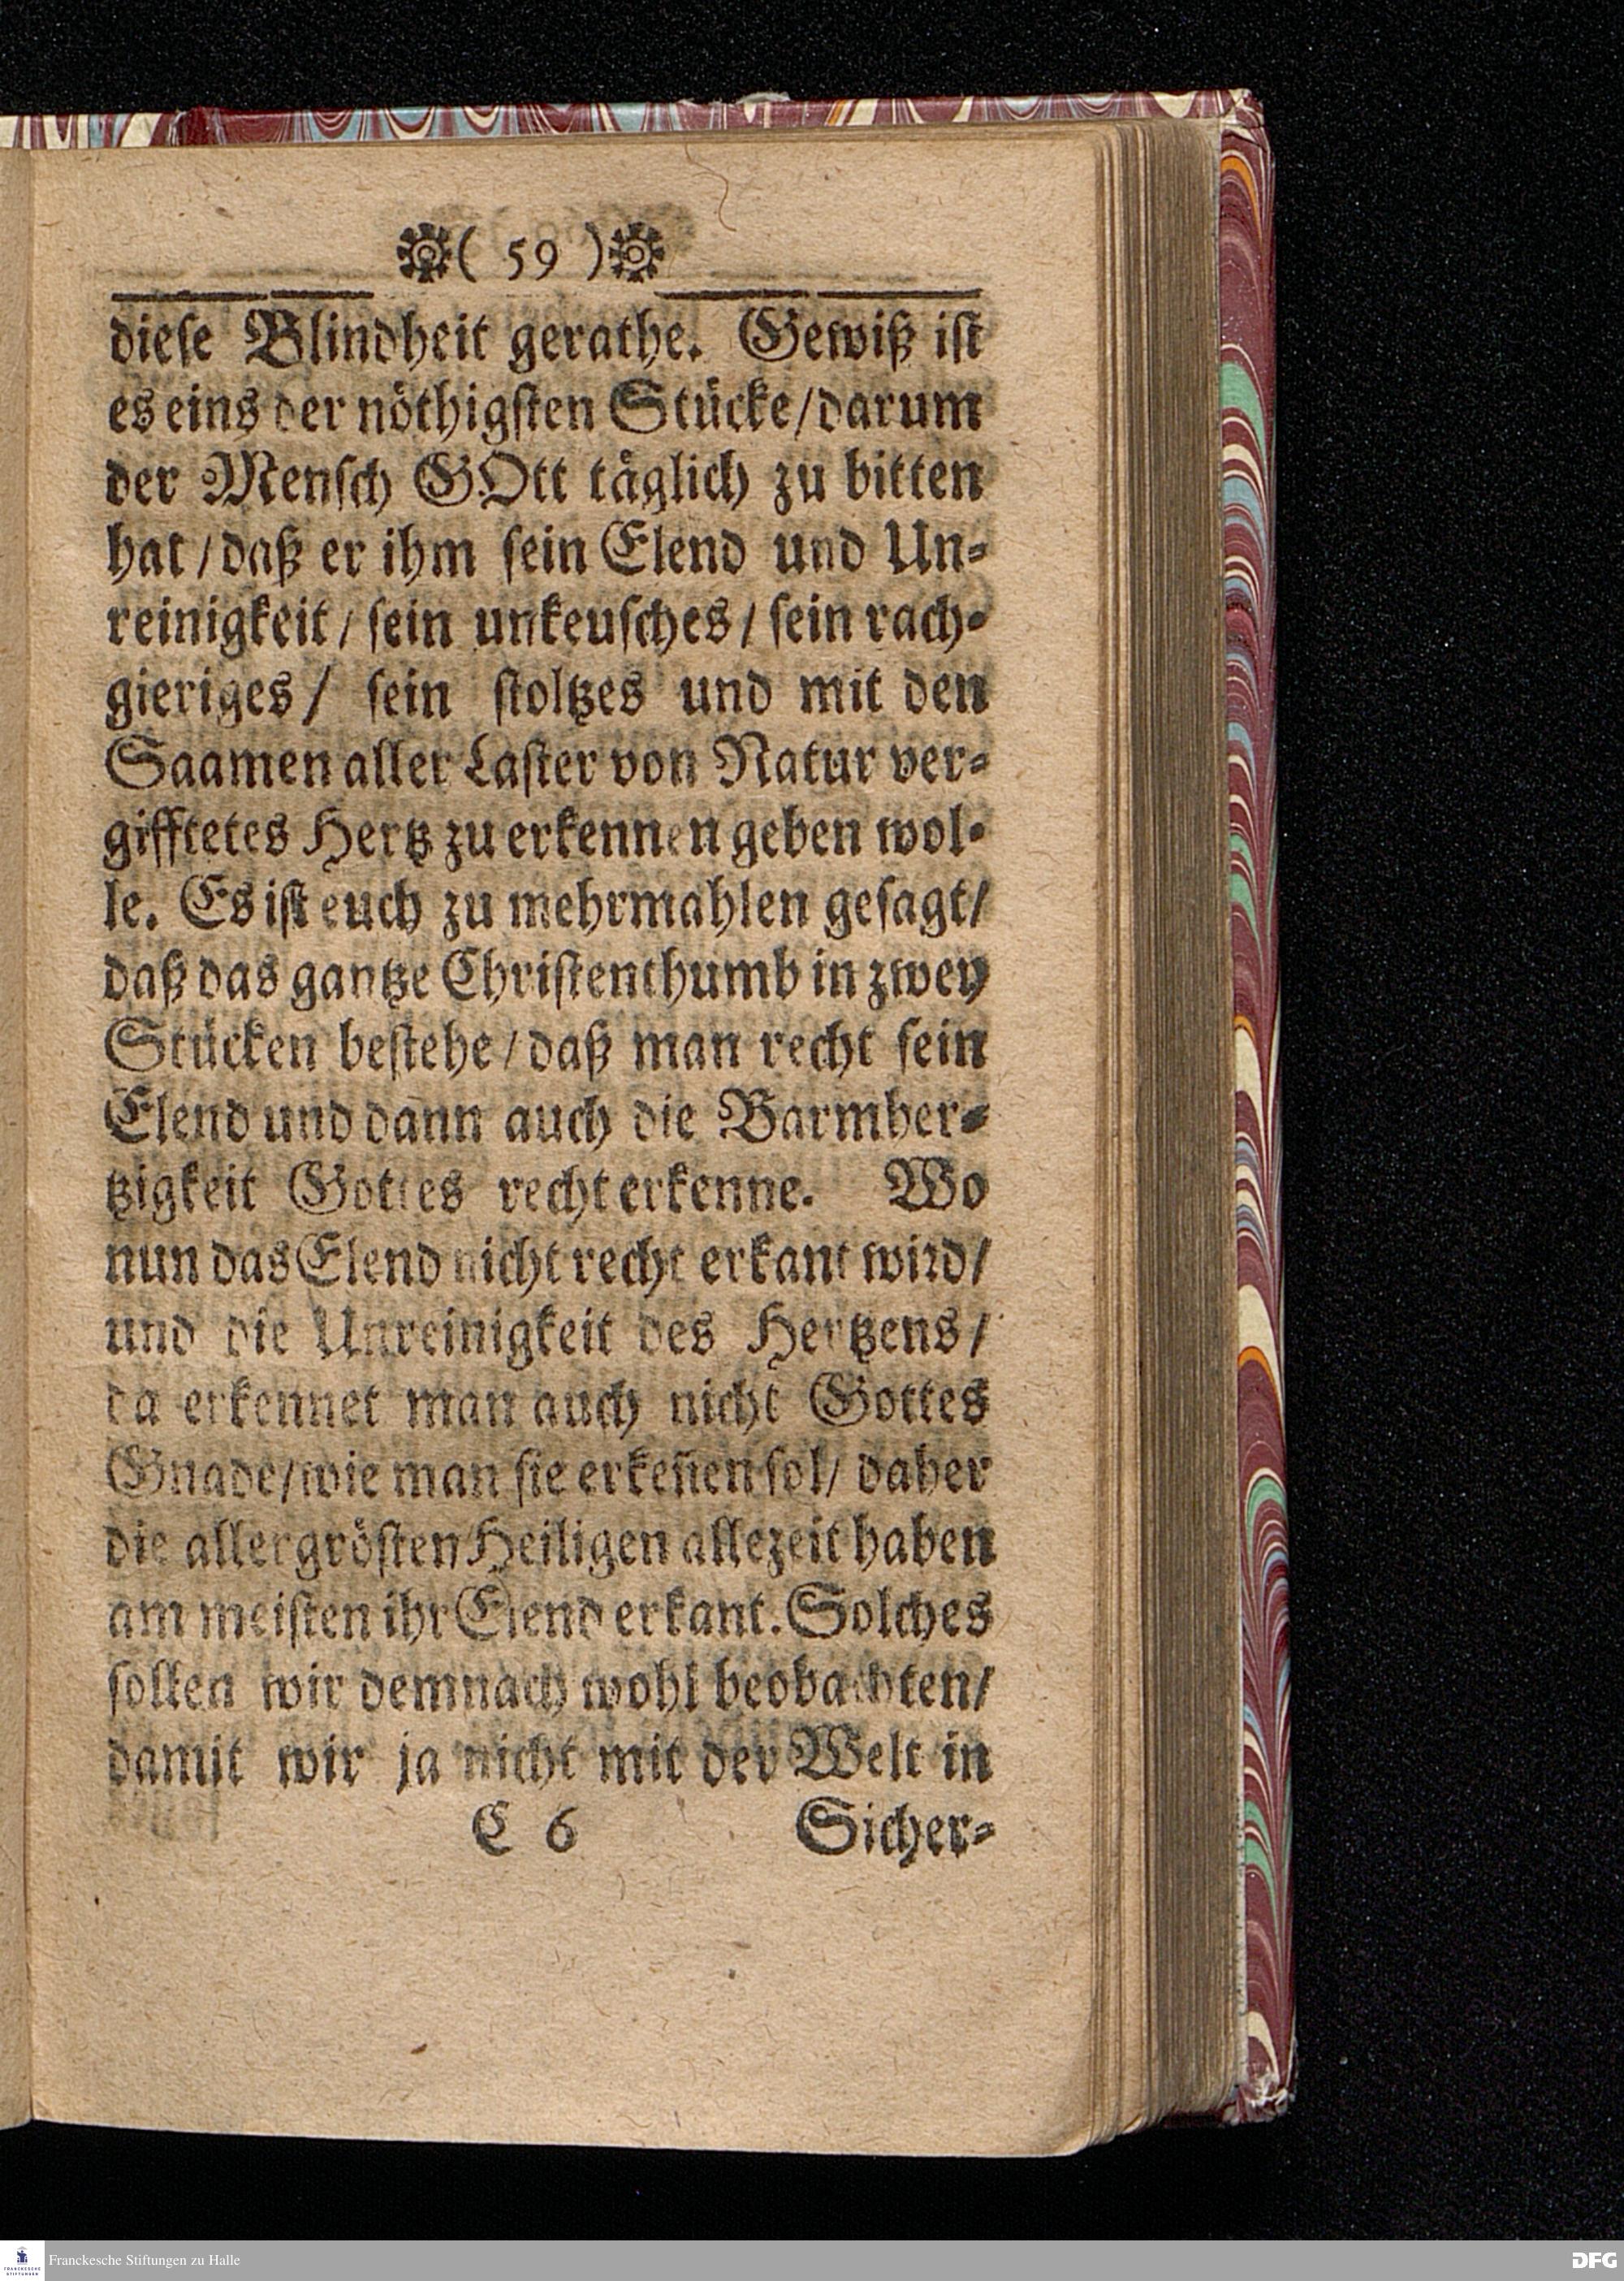 ( 59 )
diese Blindheit gerathe. Gewiß ist
es eins der nöthigsten Stücke/darum
der Mensch GOtt täglich zu bitten
hat/daß er ihm sein Elend und Un-
reinigkeit/sein unkeusches/sein rach-
gieriges/ sein stoltzes und mit den
Saamen aller Laster von Natur ver-
gifftetes Hertz zu erkennen geben wol-
le. Es ist euch zu mehrmahlen gesagt/
daß das gantze Christenthumb in zwey
Stücken bestehe/daß man recht sein
Elend und dann auch die Barmher-
tzigkeit Gottes recht erkenne. Wo
nun das Elend nicht recht erkant wird/
und die Unreinigkeit des Hertzens/
da erkennet man auch nicht Gottes
Gnade/wie man sie erkeñen sol/ daher
die allergrösten Heiligen allezeit haben
am meisten ihr Elend erkant. Solches
sollen wir demnach wohl beobachten/
damit wir ja nicht mit der Welt in
C 6 Sicher-
Franckesche Stiftungen zu Halle
DFG